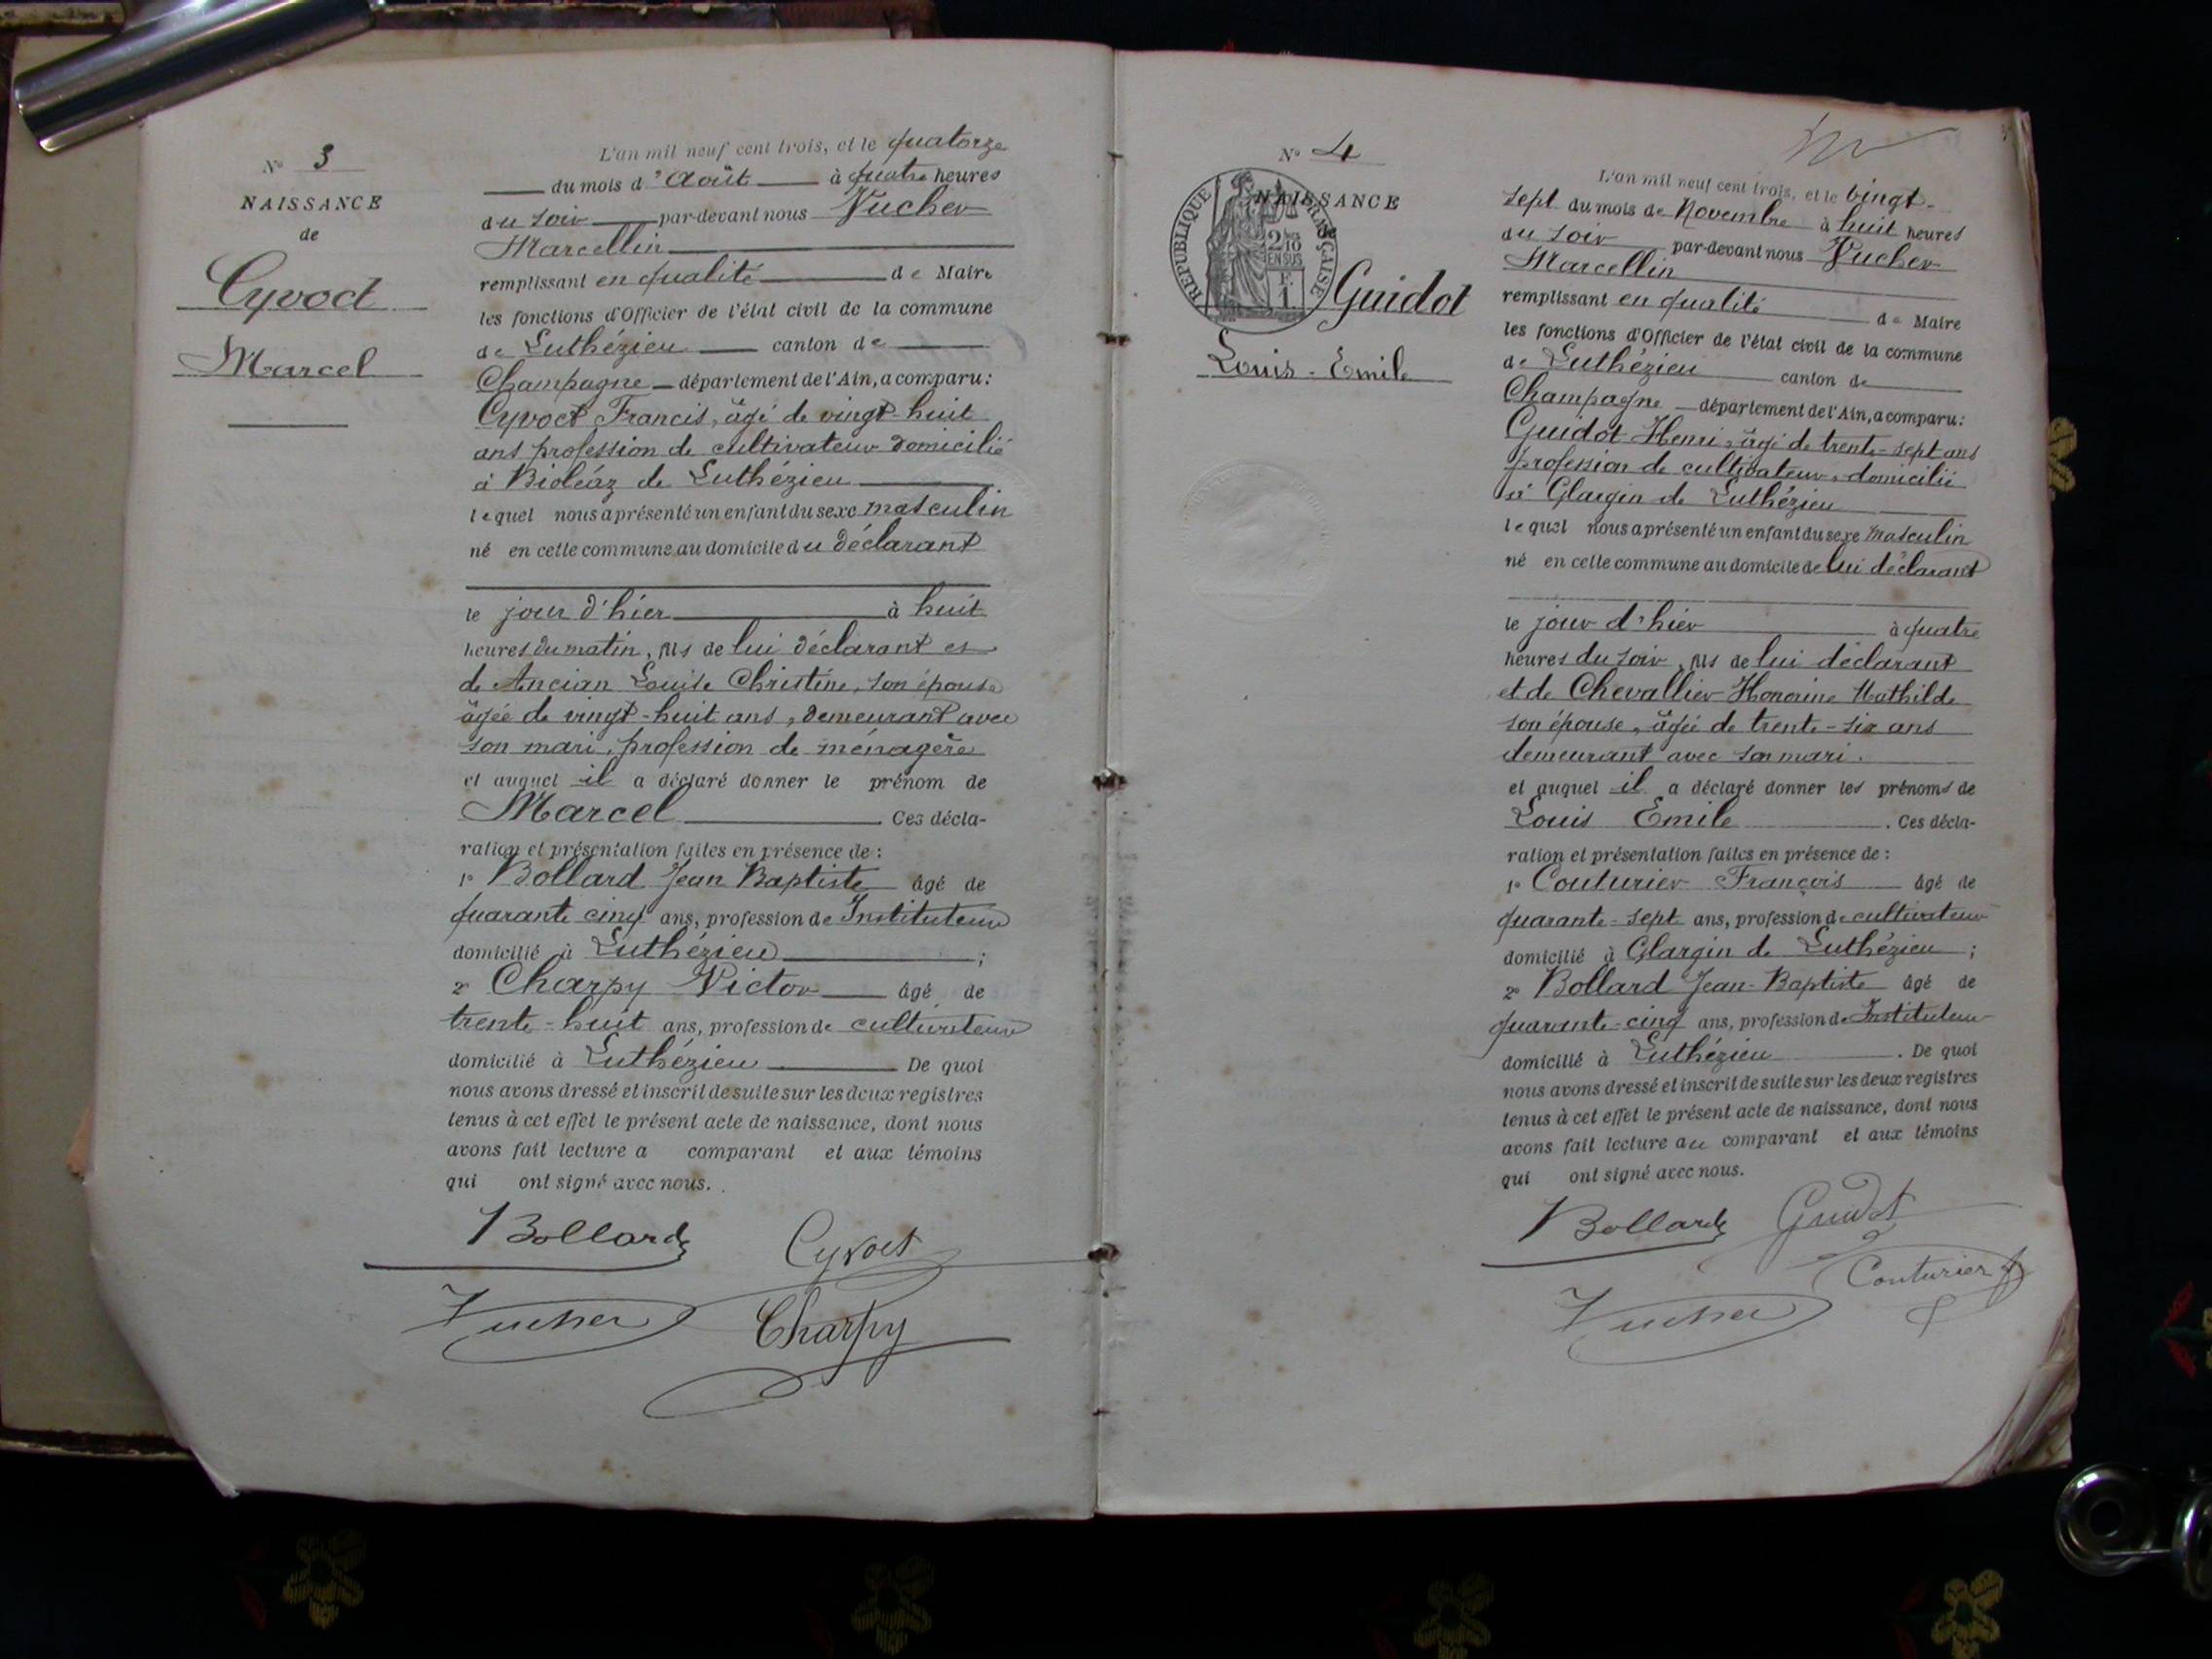 N° 3
NAISSANCE
de
Cyvoct
Marcel
L'an mil neuf cent trois, et le quatorze
du mois d'Août à quatre heures
du soir par-devant nous Vucher
Marcellin
remplissant en qualité de Maire
les fonctions d'Officier de l'état civil de la commune
de Luthézieu canton de
Champagne département de l'Ain, a comparu :
Cyvoct Francis, âgé de vingt-huit
ans profession de cultivateur domicilié
à Bioléaz de Luthézieu
lequel nous a présenté un enfant du sexe masculin
né en cette commune au domicile du déclarant
le jour d'hier à huit
heures du matin, fils de lui déclarant et
de Ancian Louise Christine, son épouse
âgée de vingt-huit ans, demeurant avec
son mari, profession de ménagère
et auquel il a déclaré donner le prénom de
Marcel Ces décla-
ration et présentation faites en présence de :
1° Bollard Jean Baptiste âgé de
quarante cinq ans, profession de Instituteur
domicilié à Luthézieu ;
2° Charpy Victor âgé de
trente-huit ans, profession de cultivateur
domicilié à Luthézieu De quoi
nous avons dressé et inscrit de suite sur les deux registres
tenus à cet effet le présent acte de naissance, dont nous
avons fait lecture a comparant et aux témoins
qui ont signé avec nous.
Bollard Cyvoct
Vucher Charpy
N° 4
NAISSANCE
de
RÉPUBLIQUE FRANÇAISE
2/10 EN SUS
F. 1
Guidot
Louis-Emile
L'an mil neuf cent trois, et le vingt-
sept du mois de Novembre à huit heures
du soir par-devant nous Vucher
Marcellin
remplissant en qualité de Maire
les fonctions d'Officier de l'état civil de la commune
de Luthézieu canton de
Champagne département de l'Ain, a comparu :
Guidot Henri, âgé de trente-sept ans
profession de cultivateur, domicilié
à Glargin de Luthézieu
lequel nous a présenté un enfant du sexe masculin
né en cette commune au domicile de lui déclarant
le jour d'hier à quatre
heures du soir, fils de lui déclarant
et de Chevallier Honorine Mathilde
son épouse, âgée de trente-six ans
demeurant avec son mari.
et auquel il a déclaré donner les prénoms de
Louis Emile . Ces décla-
ration et présentation faites en présence de :
1° Couturier François âgé de
quarante-sept ans, profession de cultivateur
domicilié à Glargin de Luthézieu ;
2° Bollard Jean-Baptiste âgé de
quarante-cinq ans, profession d'Instituteur
domicilié à Luthézieu . De quoi
nous avons dressé et inscrit de suite sur les deux registres
tenus à cet effet le présent acte de naissance, dont nous
avons fait lecture au comparant et aux témoins
qui ont signé avec nous.
Bollard Guidot
Couturier f
Vucher